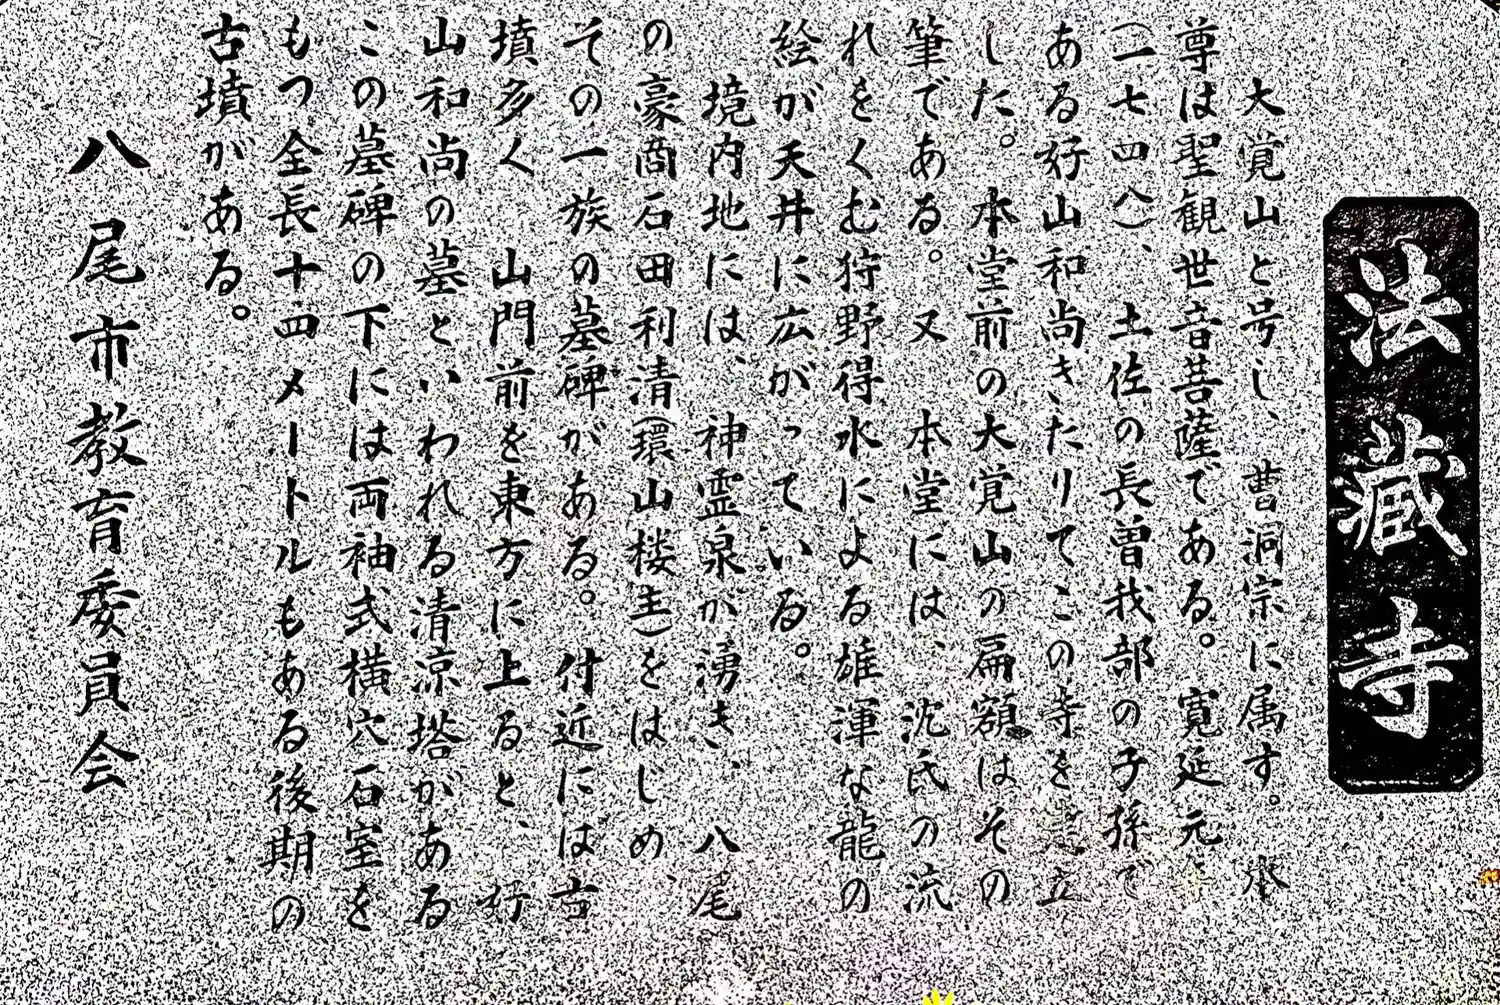 法藏寺
大覚山と号し、曹洞宗に属す。本
尊は聖観世音菩薩である。寛延元年
(一七四八)、土佐の長曽我部の子孫で
ある行山和尚きたりてこの寺を建立
した。本堂前の大覚山の扁額はその
筆である。又 本堂には、沈氏の流
れをくむ狩野得水による雄渾な龍の
絵が天井に広がっている。
境内地には、神霊泉が湧き、八尾
の豪商石田利清(環山楼主)をはじめ、
その一族の墓碑がある。付近には古
墳多く 山門前を東方に上ると、行
山和尚の墓といわれる清涼塔がある
この墓碑の下には両袖式横穴石室を
もつ全長十四メートルもある後期の
古墳がある。
八尾市教育委員会